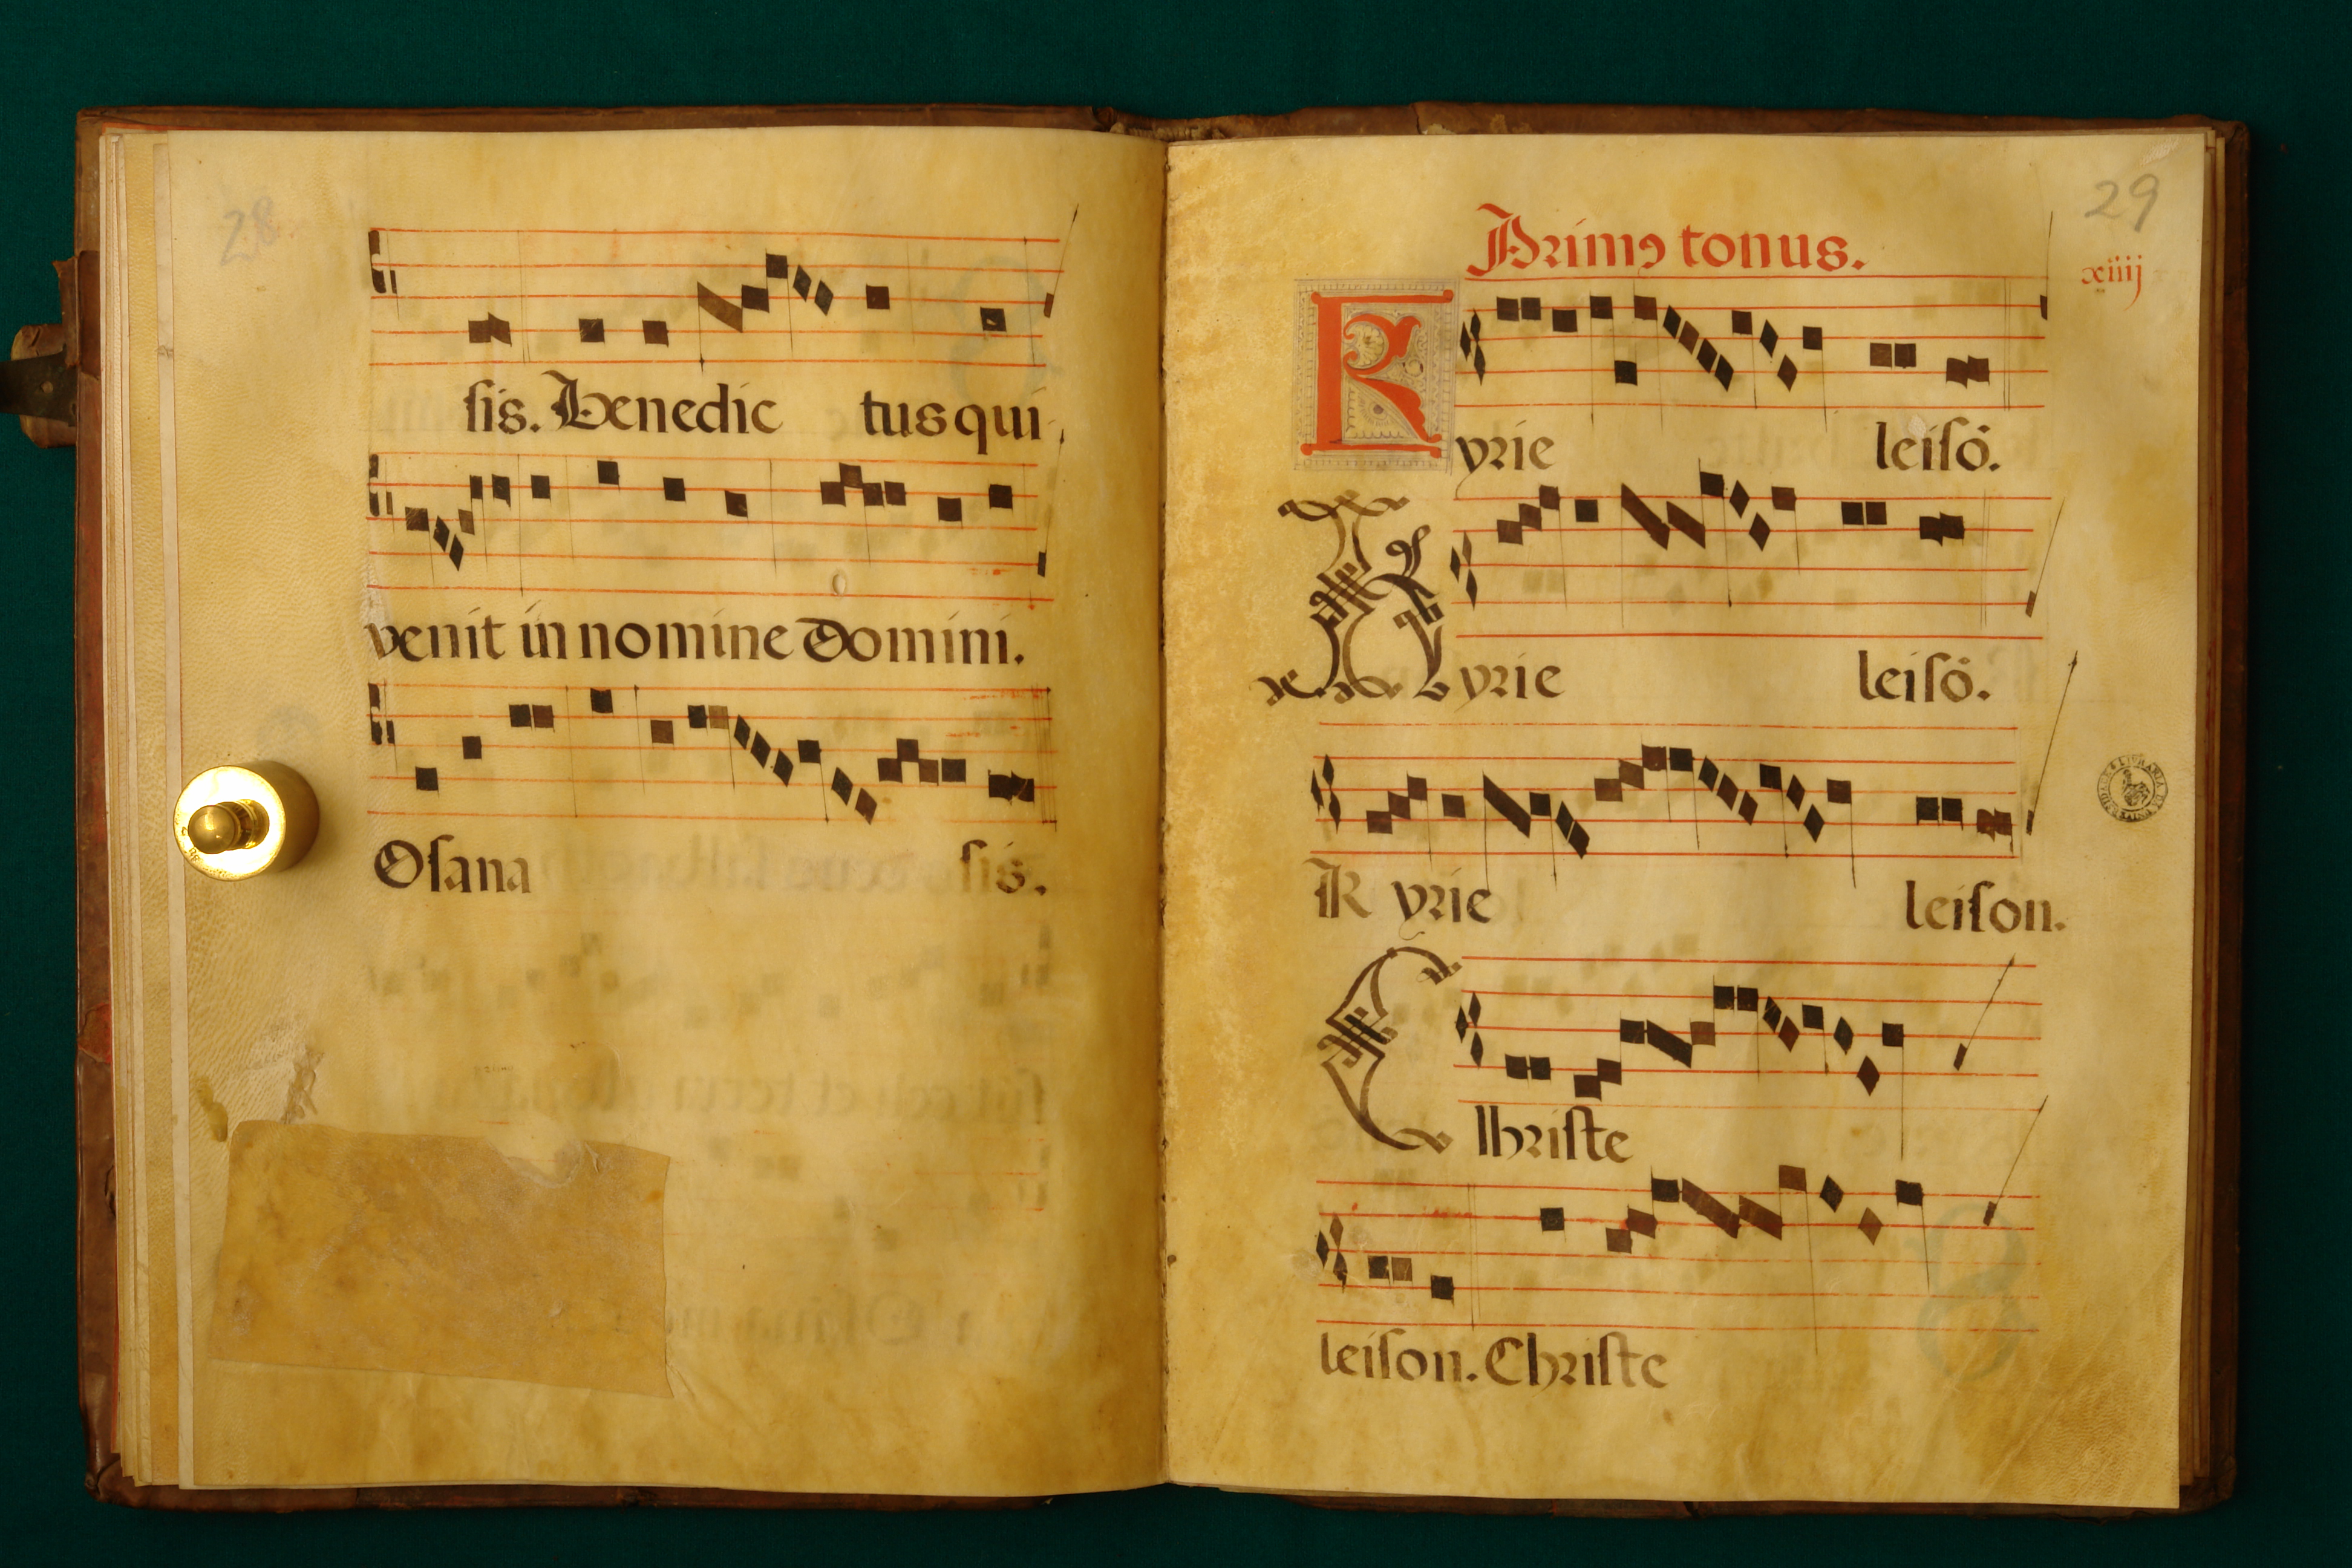 28
sis. Benedic tus qui
venit in nomine Domini.
Osana sis.
29
Primꝰ tonus.
xiiij
Kyrie leisō.
Kyrie leisō.
Kyrie leison.
Christe
leison. Christe